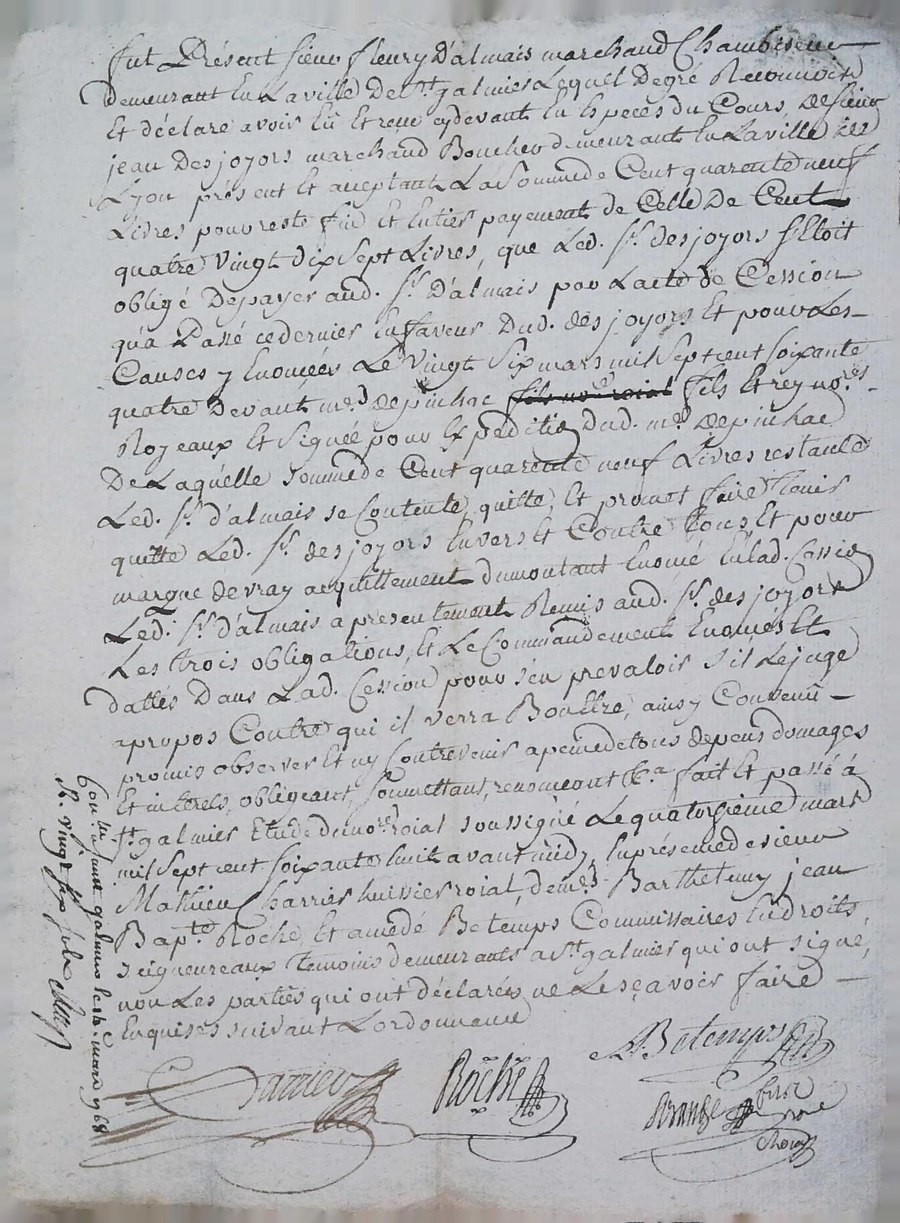 fut Présent sieur fleury D'almais marchand Chamoiseur
demeurant En La ville de st. galmier Lequel De gré Reconnoit
Et déclare avoir Eu Et receu cydevant En Espèces du Cours, de sieur
jean Desjoyors marchand Boucher demeurant En La ville de
Lyon présent Et aceptant La Somme de Cent quarente neuf
Livres pour reste fin Et Entier payement de Celle De Cent
quatre Vingt Dix Sept Livres, que Led. sr. desjoyors s'Etoit
obligé De payer aud. sr. D'almais par L'acte de Cession
qu'a Passé ce dernier En faveur Dud. desjoyors Et pour Les
Causes y Enoncées Le Vingt Six mars mil Sept cent soixante
quatre Devant me. Depinhac fils nore. roial fils Et rey nores.
Royeaux Et Signée pour Expedition dud. me. Depinhac
De Laquelle somme de Cent quarente neuf Livres restante
Led. sr. d'almais se Contente, quitte, Et promet faire tenir
quitte Led. sr. desjoyors Envers Et Contre tous, Et pour
marque de vray acquittement du montant Enoncé En Lad. Cession
Led. sr. d'almais a presentement Remis aud. sr. desjoyors
Les trois obligations, Et Le Commandement Enoncés Et
dattés Dans Lad. Cession pour s'en prevaloir s'il Le juge
apropos Contre qui il verra Bon Etre, ainsy Convenu
promis observer Et ny Contrevenir a peine de tous depens domages
Et interets, obligeant, soumettant, renonceant &a. fait Et passé à
st. galmier Etude du nore. roial soussigné Le quatorsieme mars
mil Sept cent soixante huit avant midy, En présence de sieur
Mathieu Charrier huissier roial, de me. Barthelemy jean
Bapte. Roche, Et amedé Betemps Commissaires En droits
seigneureaux temoins demeurants a st. galmier qui ont signé,
non Les parties qui ont déclarés ne Le sçavoir faire
Enquises suivant L'ordonnance
Betemps
Charrier
Roche
nore
roial